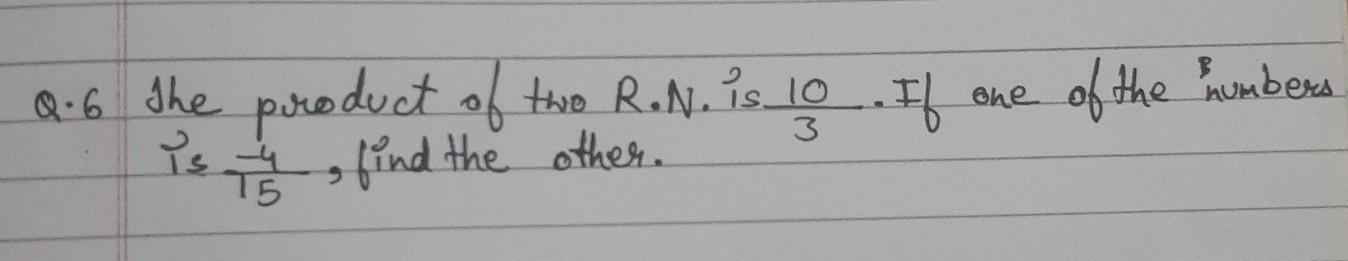 Q.6 The product of two R.N. is 10/3. If one of the numbers
is -4/15, find the other.